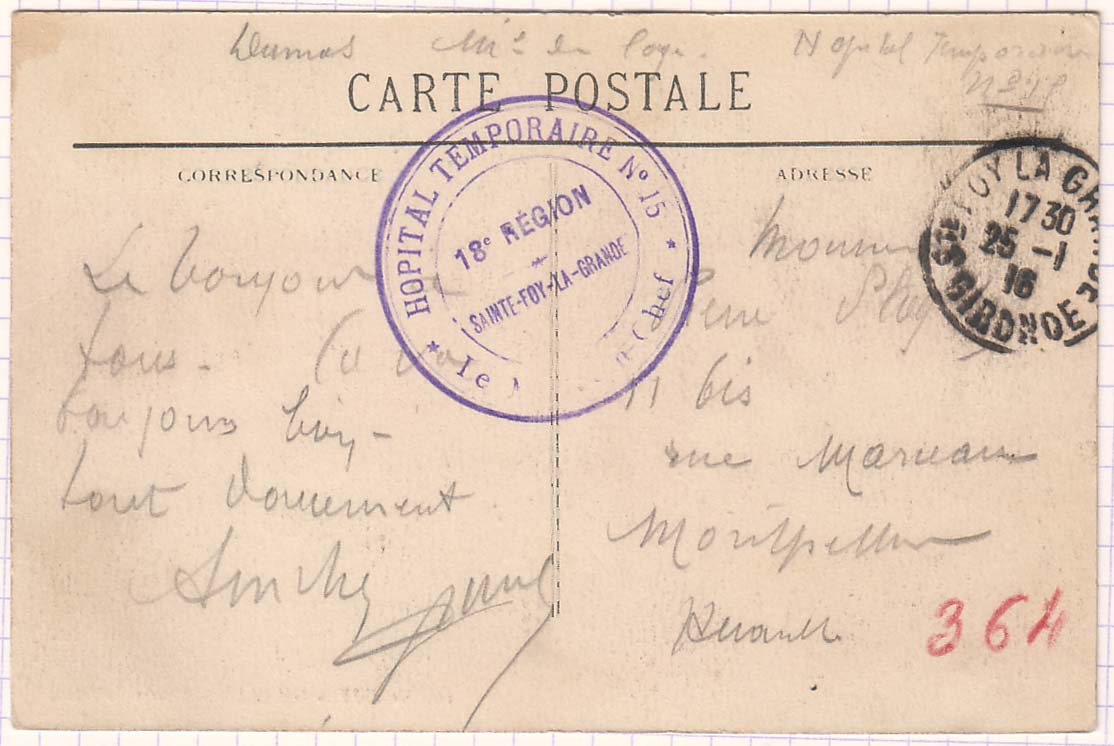 Dumas Hopital Temporaire
N° 15
CARTE POSTALE
CORRESPONDANCE
ADRESSE
HOPITAL TEMPORAIRE N° 15
18e RÉGION
SAINTE-FOY-LA-GRANDE
Le Chef
FOY LA GRANDE
1730
25 -1
16
GIRONDE
Le bonjour
tous. Ca va
toujours bien
tout doucement
Monsieur
11 bis
rue Marceau
Montpellier
Herault
364